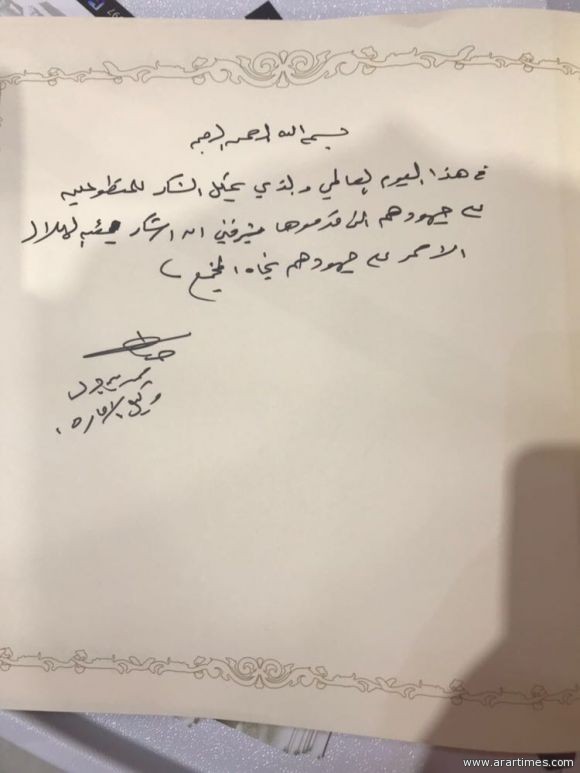 بسم الله الرحمن الرحيم
في هذا اليوم العالمي والذي يمثل الشكر للمتطوعين
على جهودهم التي قدموها يشرفني ان اشكر هيئة الهلال
الاحمر على جهودهم تجاه المجتمع
وكيل الامارة
www.arartimes.com